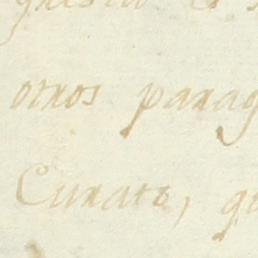 ornos parag
Curato, q